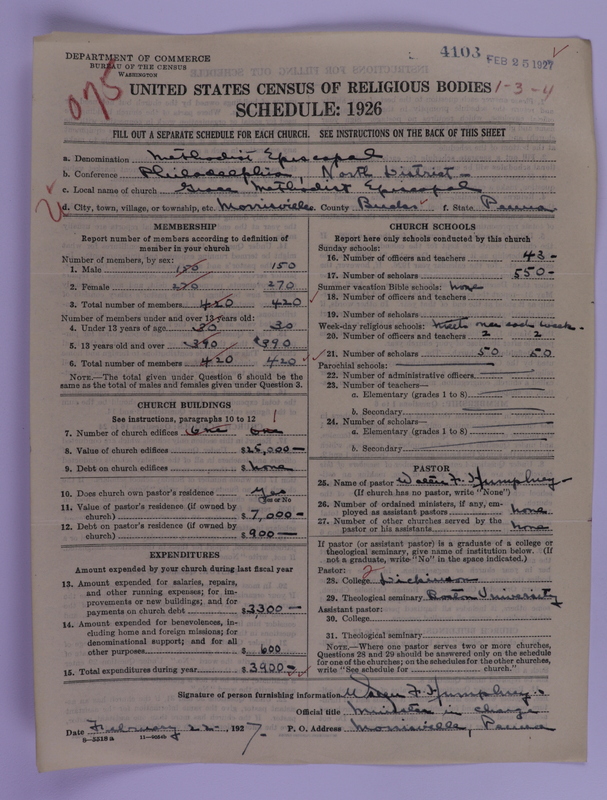 DEPARTMENT OF COMMERCE
BUREAU OF THE CENSUS
WASHINGTON
4103 FEB 25 1927
075
UNITED STATES CENSUS OF RELIGIOUS BODIES 1-3-4
SCHEDULE: 1926
FILL OUT A SEPARATE SCHEDULE FOR EACH CHURCH. SEE INSTRUCTIONS ON THE BACK OF THIS SHEET
a. Denomination Methodist Episcopal
b. Conference Philadelphia, North District
c. Local name of church Grace Methodist Episcopal
d. City, town, village, or township, etc. Morrisville County Bucks f. State Penna
MEMBERSHIP
Report number of members according to definition of
member in your church
Number of members, by sex:
1. Male 150 150
2. Female 270 270
3. Total number of members 420 420
Number of members under and over 13 years old:
4. Under 13 years of age 30 30
5. 13 years old and over 390 390
6. Total number of members 420 420
NOTE.—The total given under Question 6 should be the
same as the total of males and females given under Question 3.
CHURCH BUILDINGS
See instructions, paragraphs 10 to 12
7. Number of church edifices One One
8. Value of church edifices $25,000
9. Debt on church edifices $ None
10. Does church own pastor's residence Yes
Yes or No
11. Value of pastor's residence (if owned by
church) $7,000
12. Debt on pastor's residence (if owned by
church) $900
EXPENDITURES
Amount expended by your church during last fiscal year
13. Amount expended for salaries, repairs,
and other running expenses; for im-
provements or new buildings; and for
payments on church debt $3300
14. Amount expended for benevolences, in-
cluding home and foreign missions; for
denominational support; and for all
other purposes $600
15. Total expenditures during year $3900
CHURCH SCHOOLS
Report here only schools conducted by this church
Sunday schools:
16. Number of officers and teachers 43
17. Number of scholars 550
Summer vacation Bible schools: None
18. Number of officers and teachers
19. Number of scholars
Week-day religious schools: Meets once each week
20. Number of officers and teachers 2 2
21. Number of scholars 50 50
Parochial schools:
22. Number of administrative officers
23. Number of teachers—
a. Elementary (grades 1 to 8)
b. Secondary
24. Number of scholars—
a. Elementary (grades 1 to 8)
b. Secondary
PASTOR
25. Name of pastor Walter F. Humphrey
(If church has no pastor, write "None")
26. Number of ordained ministers, if any, em-
ployed as assistant pastors None
27. Number of other churches served by the
pastor or his assistants None
If pastor (or assistant pastor) is a graduate of a college or
theological seminary, give name of institution below. (If
not a graduate, write "No" in the space indicated.)
Pastor:
28. College Dickinson
29. Theological seminary Boston University
Assistant pastor:
30. College
31. Theological seminary
NOTE.—Where one pastor serves two or more churches,
Questions 28 and 29 should be answered only on the schedule
for one of the churches; on the schedules for the other churches,
write "See schedule for church."
Signature of person furnishing information Walter F. Humphrey
Official title Minister in charge
Date February 22, 1927 P. O. Address Morrisville, Penna
8—5518a